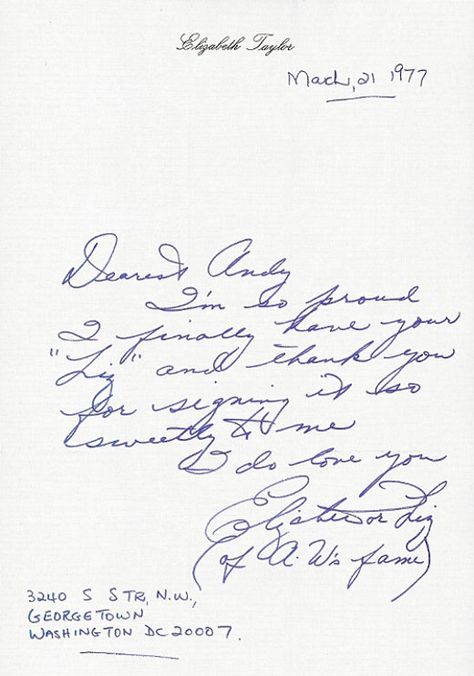 Elizabeth Taylor
March, 21 1977
Dearest Andy
I'm so proud
I finally have your
"Liz" and thank you
for signing it so
sweetly to me
I do love you
Elizabeth or Liz
(of A. W's fame)
3240 S STR, N.W.,
GEORGETOWN
WASHINGTON DC 20007.